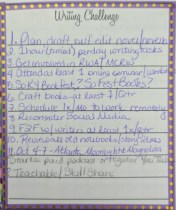 Writing Challenge
1. Plan, draft, out edit novel/
2. 1hour (timed) perday writing tasks
3. Get involved in RWA/MCRW
4. Attend at least 1 online seminar/
5. SoKY Book Fest? SoFest Books?
6. Craft books - at least 1/Qtr
7. Schedule 1x/Mo to work remotely
8. Reconsider Social Media
9. F2F w/ writers at least 1x/Qtr
10. Reconsider old newbooks/story ideas
11. Oct 4-7 - Atlanta Moonlight Magnolias
paid podcast
Teachable/Skill Share